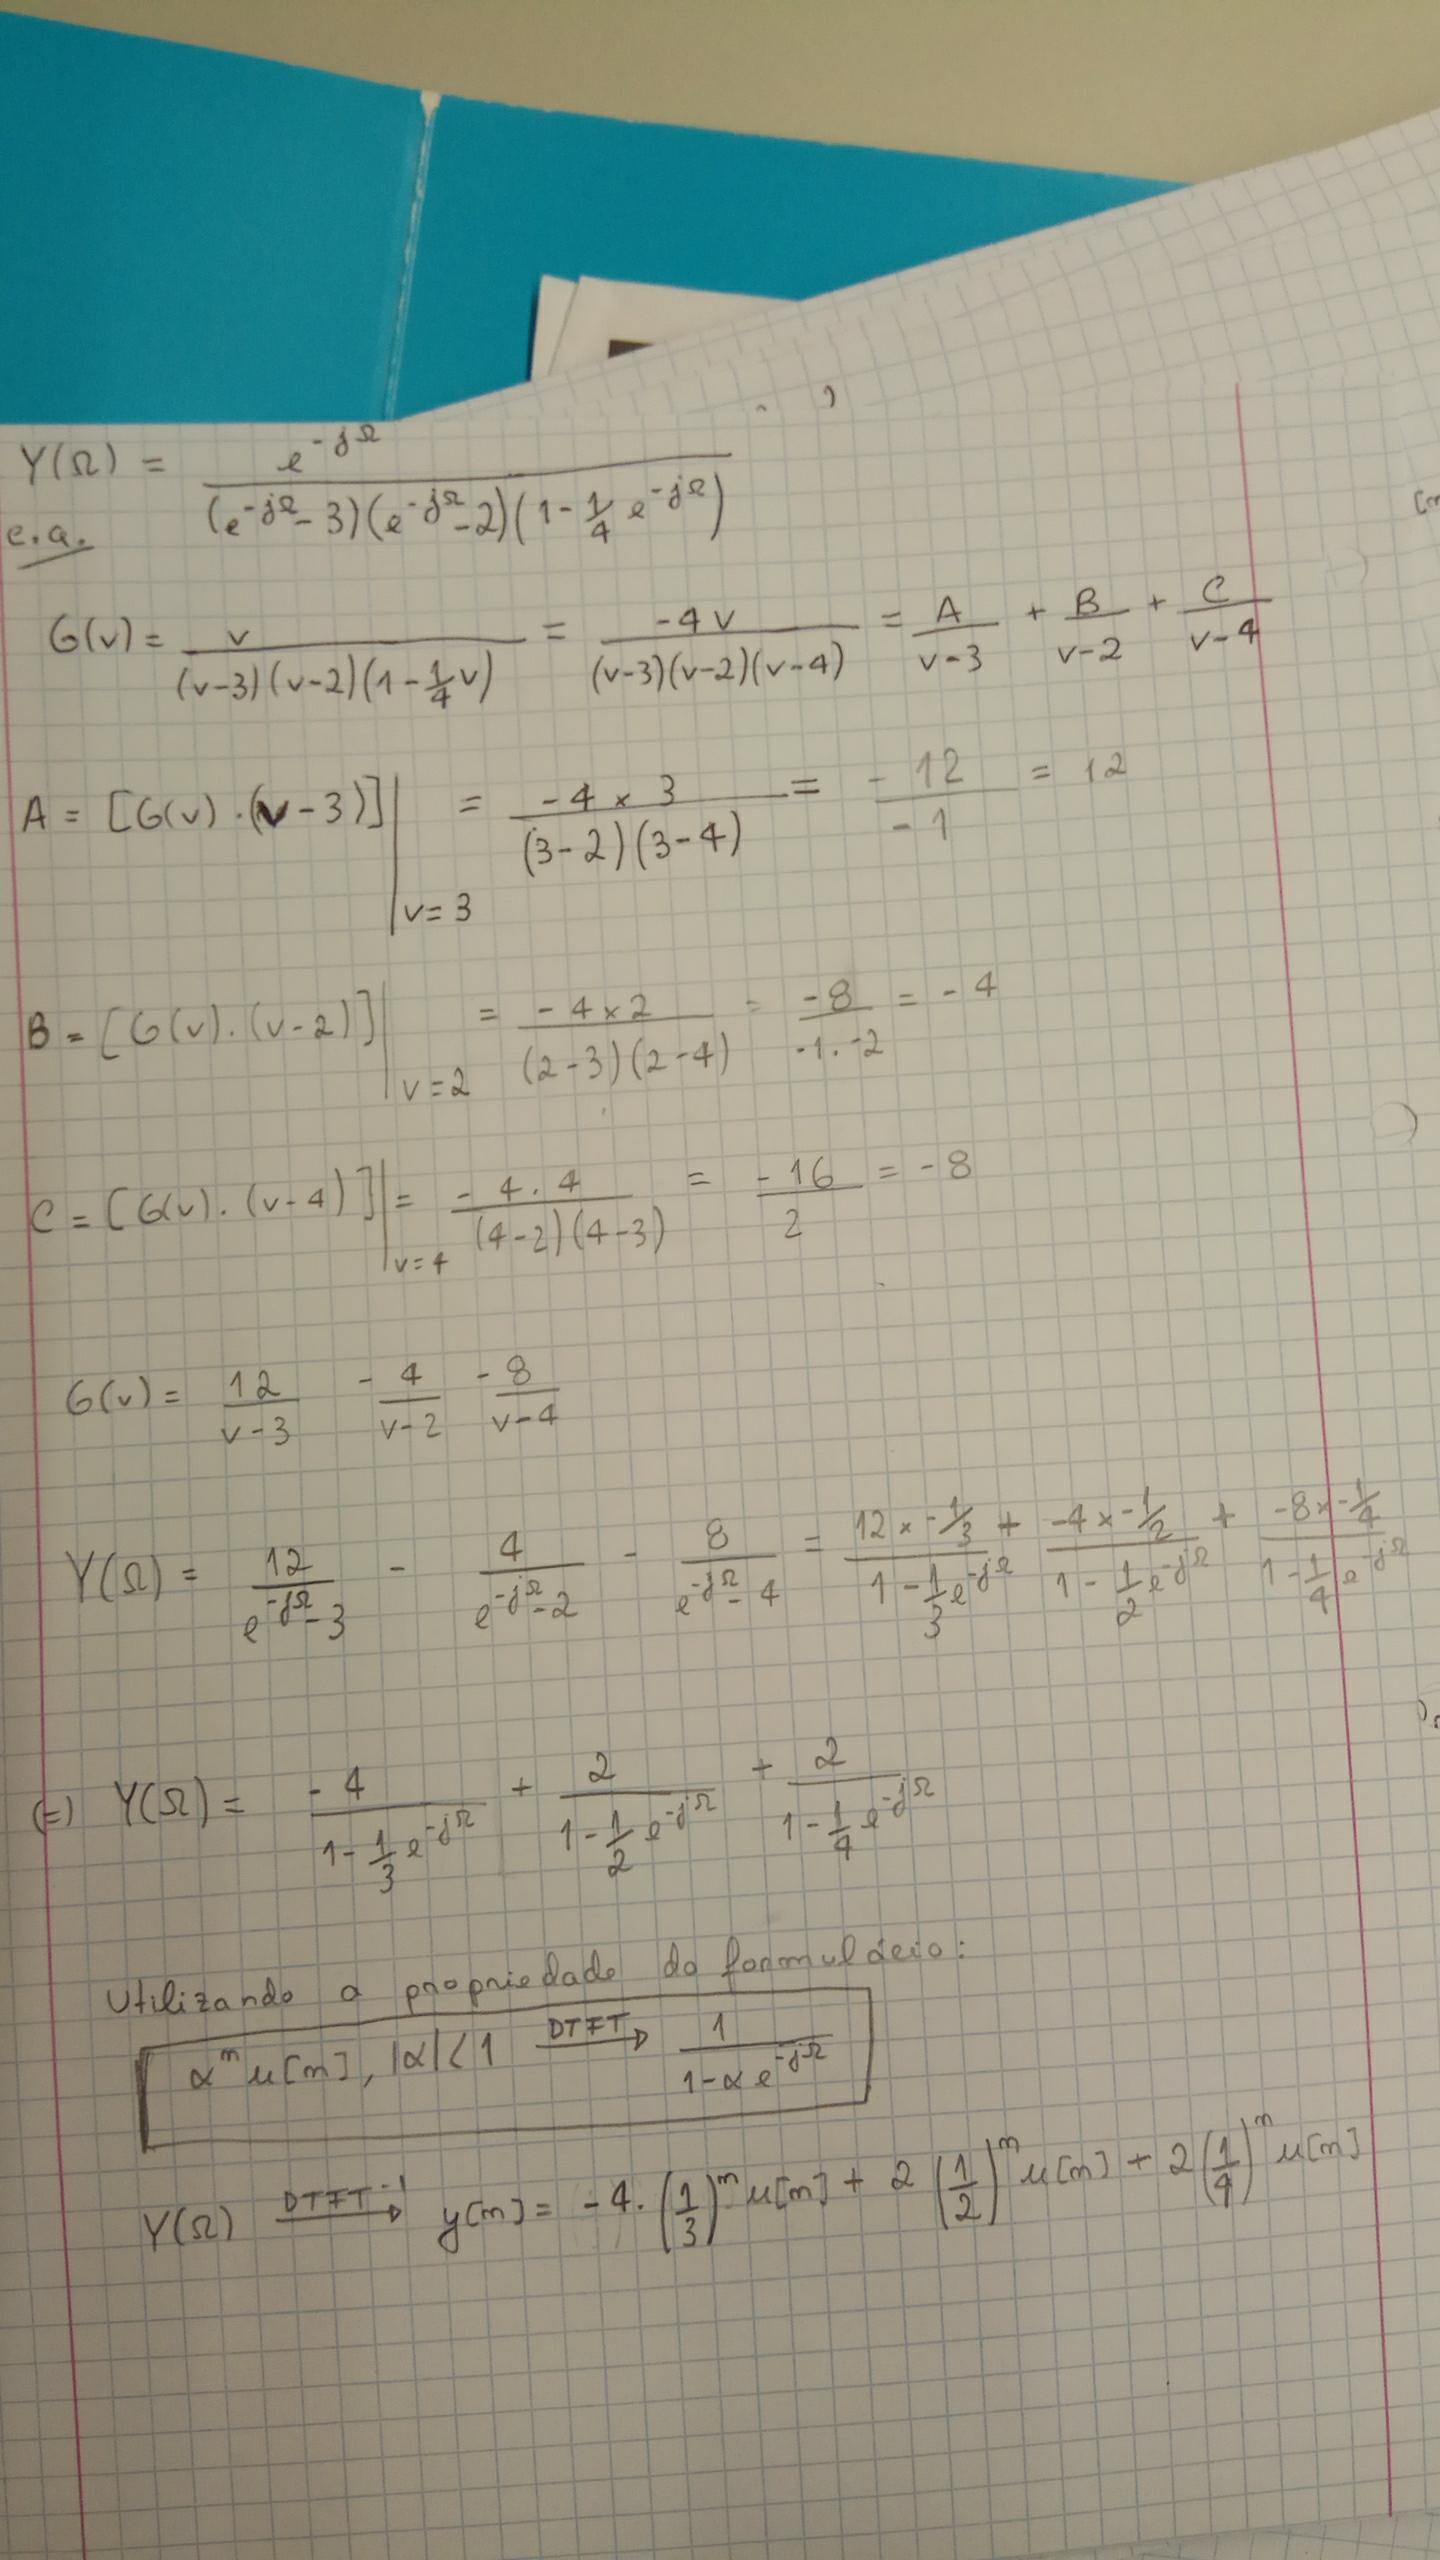 Y(Ω) = e^-jΩ / (e^-jΩ - 3)(e^-jΩ - 2)(1 - 1/4 e^-jΩ)
c.a.
G(v) = v / (v-3)(v-2)(1-1/4 v) = -4v / (v-3)(v-2)(v-4) = A/(v-3) + B/(v-2) + C/(v-4)
A = [G(v) . (v-3)] |v=3 = -4 x 3 / (3-2)(3-4) = -12 / -1 = 12
B = [G(v) . (v-2)] |v=2 = -4x2 / (2-3)(2-4) = -8 / -1.-2 = -4
C = [G(v) . (v-4)] |v=4 = -4.4 / (4-2)(4-3) = -16 / 2 = -8
G(v) = 12/(v-3) - 4/(v-2) - 8/(v-4)
Y(Ω) = 12/(e^-jΩ - 3) - 4/(e^-jΩ - 2) - 8/(e^-jΩ - 4) = 12 x -1/3 / (1 - 1/3 e^-jΩ) + -4 x -1/2 / (1 - 1/2 e^-jΩ) + -8 x -1/4 / (1 - 1/4 e^-jΩ)
(=) Y(Ω) = -4 / (1 - 1/3 e^-jΩ) + 2 / (1 - 1/2 e^-jΩ) + 2 / (1 - 1/4 e^-jΩ)
Utilizando a propriedade do formulário:
α^n u[n], |α|<1 DTFT→ 1 / (1 - α e^-jΩ)
Y(Ω) DTFT^-1→ y[n] = -4 . (1/3)^n u[n] + 2 (1/2)^n u[n] + 2 (1/4)^n u[n]